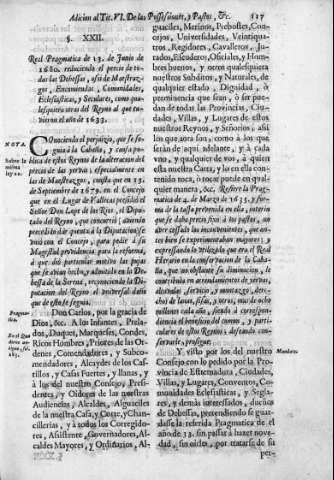 Adicion al Tit. VI. De las Possessiones, y Pastos, &c. 117
§. XXII.
Real Pragmatica de 13. de Junio de
1680. reduciendo el precio de to-
das las Debessas, assi de Maestraz-
gos, Encomiendas, Comunidades,
Eclesiasticas, y Seculares, como qua-
lesquiera otras del Reyno al que tu-
vieron el año de 1633.
NOTA.
Sobre la
misma
ley
COnociendo el perjuizio, que se se-
guia à la Cabaña, y causa pu-
blica de estos Reynos de la alteracion del
precio de las yervas, especialmente en
las de Maestrazgo, consta que en 13.
de Septiembre de 1679. en el Concejo
que en el Lugar de presidió el
Señor Don Lope de los Rios, el Dipu-
tado del Reyno
precedido dar quenta à la Diputacion se
unió con el Concejo, para pedir à su
Magestad providencia para la reforma,
à que dió particular motivo las pujas
que se abian hecho, y admitido en la De-
hessa de la Serena, reconociendo la Di-
putacion del Reyno el universal daño
que de esto se seguia.
Pragma-
tica.
Don Carlos, por la gracia de
Dios, &c. A los Infantes, Prela-
dos, Duques, Marqueses, Condes,
Ricos Hombres, Priores de las Or-
denes, Comendadores, y Subco-
mendadores, Alcaydes de los Cas-
tillos, y Casas Fuertes, y llanas, y
à los del nuestro Consejo, Presi-
dentes, y Oidores de las nuestras
Audiencias, Alcaldes, Alguaciles
de la nuestra Casa, y Corte, y Chan-
cillerias, y à todos los Corregido-
res, Assistente, Governadores, Al-
caldes Mayores, y Ordinarios, Al-
guaciles, Merinos, Prebostes, Con-
cejos, Universidades, Veintiqua-
tros, Regidores, Cavalleros, Ju-
rados, Escuderos, Oficiales, y Hom-
bres buenos, y otros qualesquiera
nuestros Subditos, y Naturales, de
qualquier estado, Dignidad, ò
preeminencia que sean, ò ser pue-
dan de todas las Provincias, Ciu-
dades, Villas, y Lugares de estos
nuestros Reynos, y Señorios, assi
los que aora son, como à los que
seràn de aqui adelante, y à cada
uno, y qualquier de vos, à quien
esta nuestra Carta, y lo en ella con-
tenido toca, ò tocar puede en qual-
quier manera, &c. Refiere la Prag-
matica de 4. de Marzo de 1633. y for-
ma de la tassa prevenida en ella, interin
que se daba precio fixo à los pastos, por
aver cessado los inconvenientes, que an-
tes se experimentaban mayores; y
expressando lo util que era el Real
Herario en la conservacion de la Caba-
ña, que no obstante su diminucion, le
contribuia en arrendamiento de yervas,
alcavalas, servicio, y montazgo, dere-
chos de lanas, sisas, y otros, mas de ocho
millones cada año, siendo à correspon-
dencia el beneficio del comun, y parti-
culares de estos Reynos,
conservarle, prosigue:
Mandato.
Y visto por los del nuestro
Consejo con lo pedido por la Pro-
vincia de Estremadura, Ciudades,
Villas, y Lugares, Conventos, Co-
munidades Eclesiasticas, y Segla-
res, y demàs interessados, dueños
de Debessas, pretendiendo se guar-
dasse la referida Pragmatica de el
año de 33. sin passar à hazer nove-
dad, sin oirles, por tratarse de su
per-